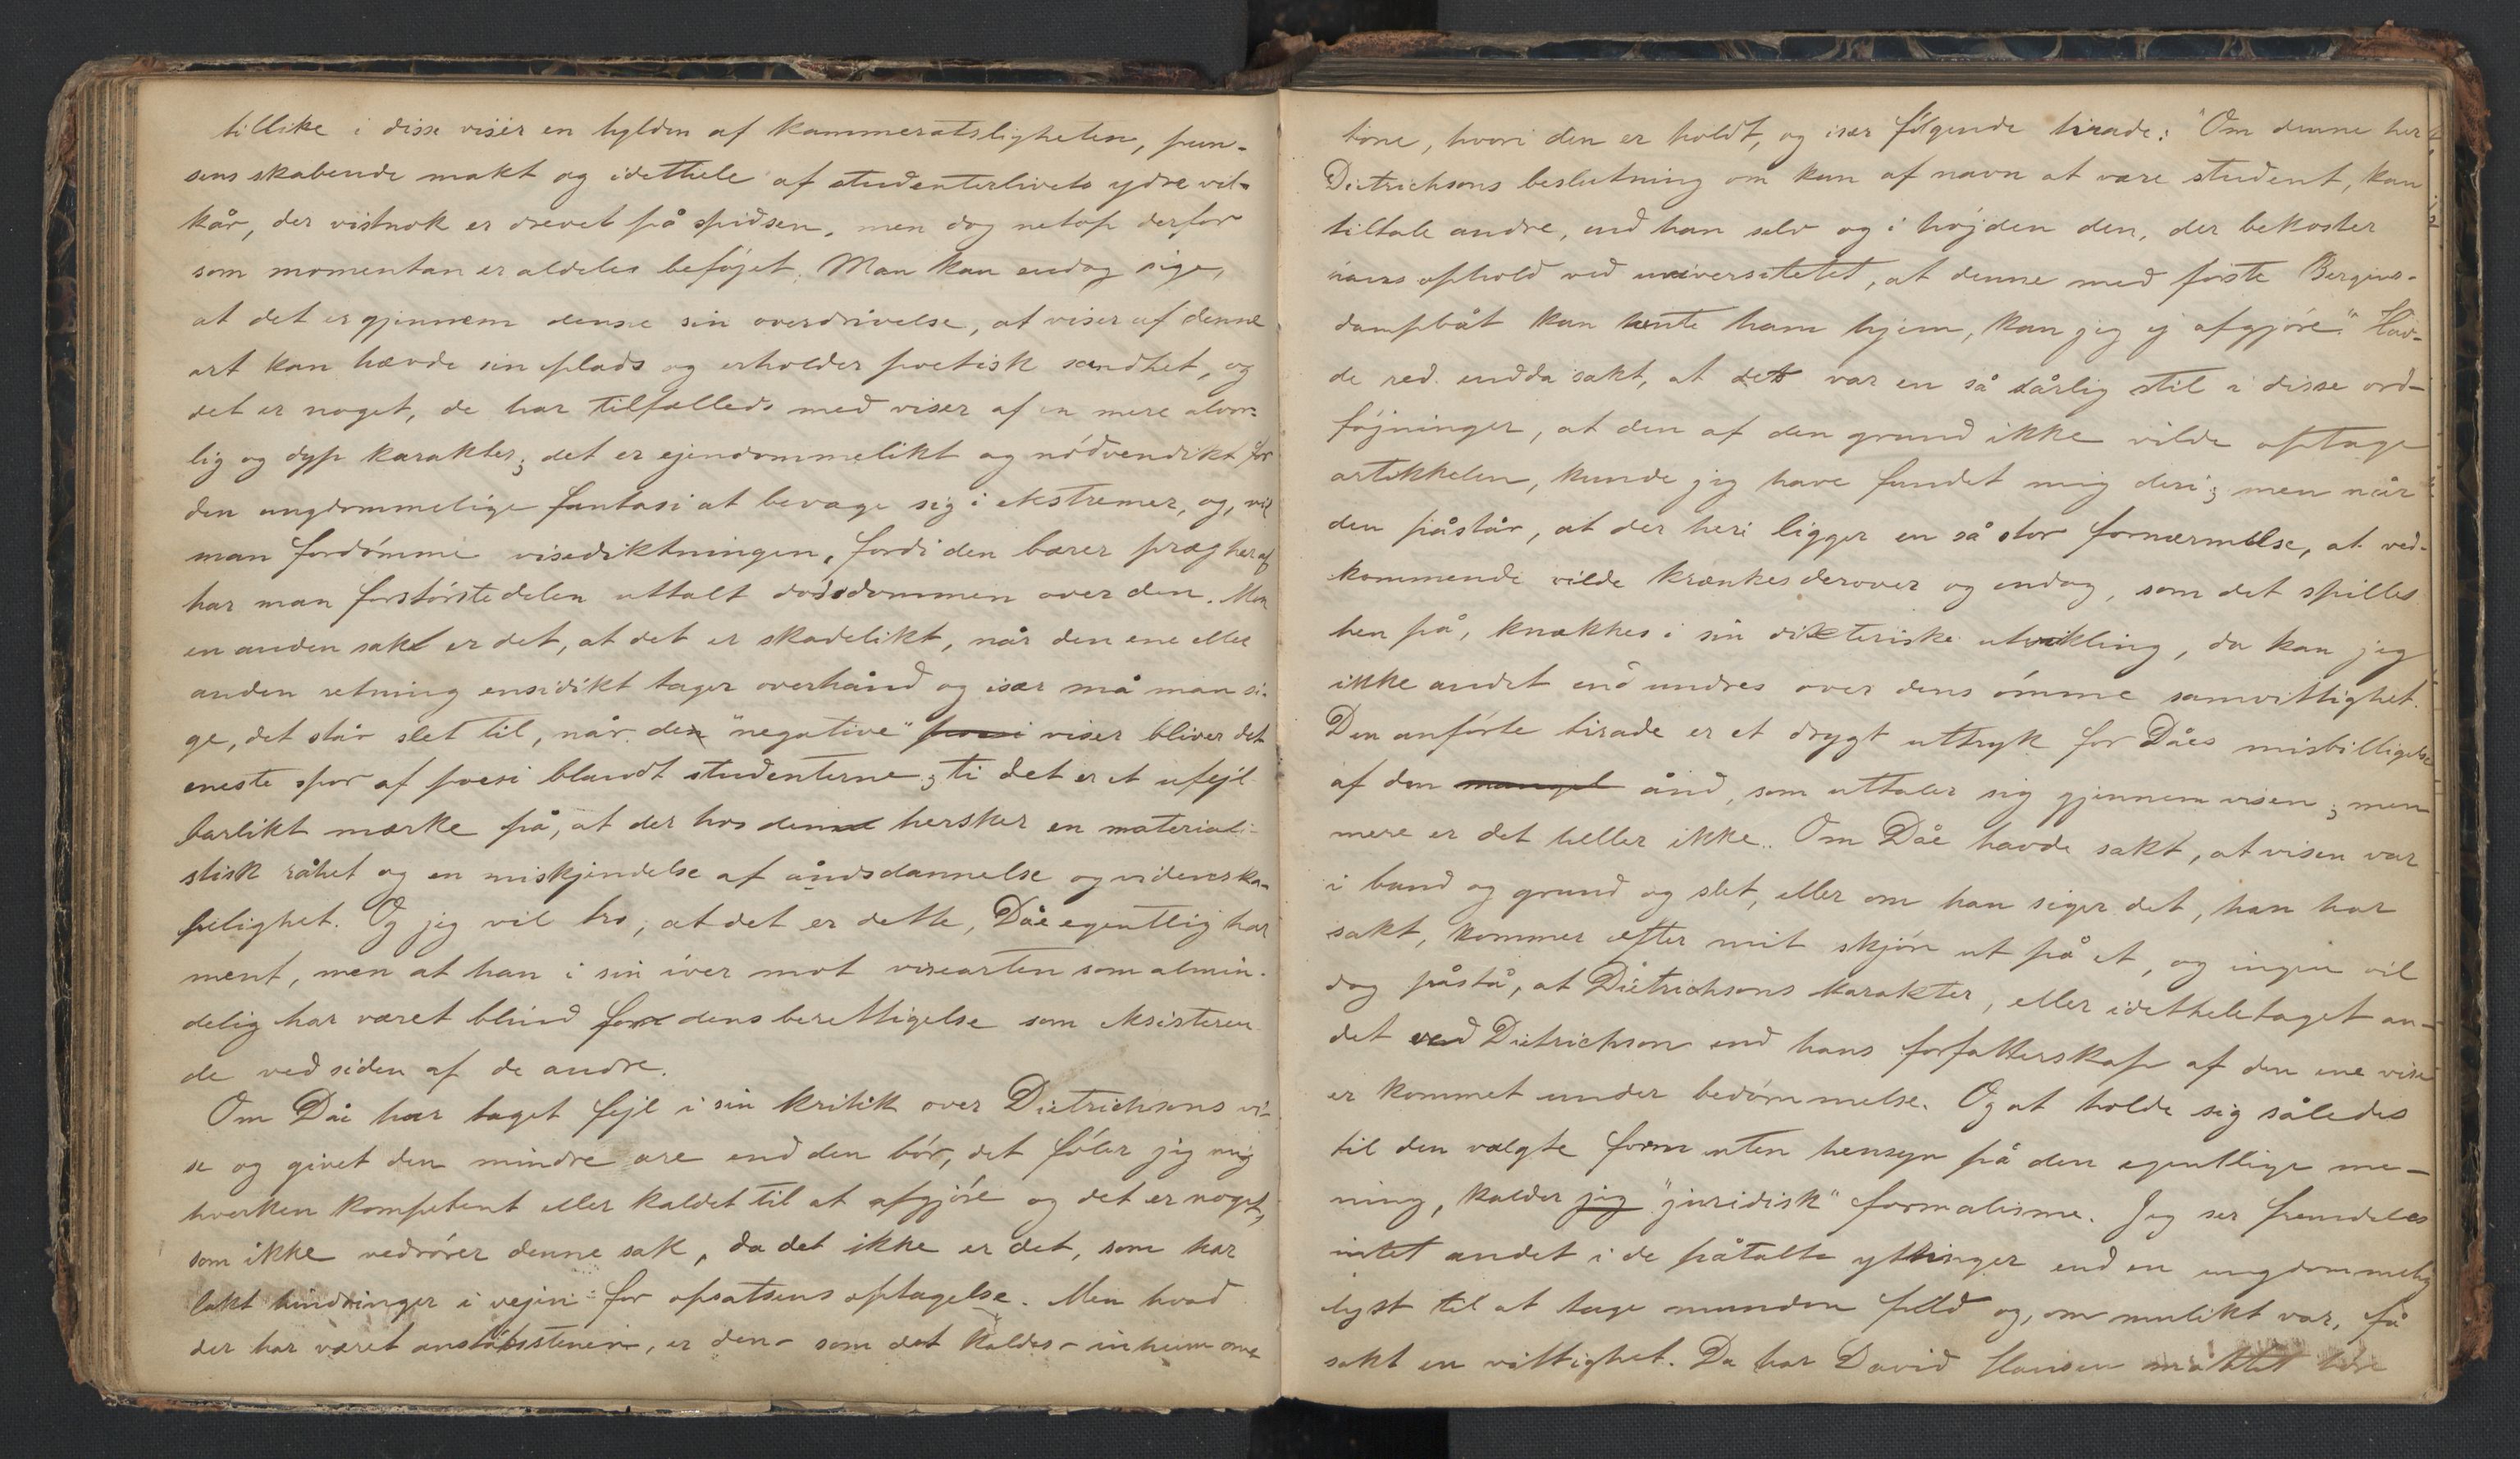 tillike i disse viser en hylden af kammeratsligheten, pun-
sens skabende makt og idethele af studenterlivets ydre vil-
kår, der vistnok er drevet på spidsen, men dog netop derfor
som momentan er aldeles beføjet. Man kan endog sige,
at det er gjennem denne sin overdrivelse, at viser af denne
art kan hævde sin plads og erholder poetisk sandhet, og
det er noget, de har tilfælleds med viser af en mere alvor-
lig og dyp karakter; det er ejendommelikt og nødvendikt for
den ungdommelige fantasi at bevæge sig i ekstremer, og, vil
man fordømme visediktningen, fordi den bærer præg heraf
har man forstørstedelen uttalt dødsdommen over den. Men
en anden sak er det, at det er skadelikt, når den ene eller
anden retning ensidikt tager overhånd og især må man si-
ge, det står slet til, når de "negative" viser bliver det
eneste spor af poesi blandt studenterne; ti det er et ufejl
barlikt mærke på, at der hos denne hersker en materiali-
stisk råhet og en miskjendelse af åndsdannelse og videnska-
pelighet. Og jeg vil tro, at det er dette, Dåe egentlig har
ment, men at han i sin iver mot visearten som almin-
delig har været blind for dens berettigelse som eksisteren-
de ved siden af de andre.
Om Dåe har taget fejl i sin kritik over Dietrichsons vi-
se og givet den mindre ære end den bør, det føler jeg mig
hverken kompetent eller kaldet til at afgjøre og det er noget,
som ikke vedrører denne sak, da det ikke er det, som har
lakt hindringer i vejen for opsatsens optagelse. Men hvad
der har været anstøtsstenen, er den - som det kaldes - inhumane
tone, hvori den er holdt, og især følgende tirade: "Om denne her
Dietrichsons beslutning om kun af navn at være student, kan
tiltale andre, end han selv og i højden den, der bekoster
hans ophold ved universitetet, at denne med første Bergens-
dampbåt kan hente ham hjem, kan jeg ej afgjøre." Hav-
de red. endda sakt, at det var en så dårlig stil i disse ord-
føjninger, at den af den grund ikke vilde optage
artikkelen, kunde jeg have fundet mig deri; men når
den påstår, at der heri ligger en så stor fornærmelse, at ved-
kommende vilde krænkes derover og endog, som det spilles
hen på, knækkes i sin dikteriske utvikling, da kan jeg
ikke andet end undres over dens ømme samvittighet.
Den anførte tirade er et drygt uttryk for Dåes misbilligelse
af den mangel ånd, som uttaler sig gjennem visen; men
mere er det heller ikke. Om Dåe havde sakt, at visen var
i bund og grund og slet, eller om han siger det, han har
sakt, kommer efter mit skjøn ut på et, og ingen vil
dog påstå, at Dietrichsons karakter, eller idetheletaget an-
det ved Dietrichson end hans forfatterskap af den ene vise
er kommet under bedømmelse. Og at holde sig således
til den valgte form uten hensyn på den egentlige me-
ning, kalder jeg "juridisk" formalisme. Jeg ser fremdeles
intet andet i de påtalte yttringer end en ungdommelig
lyst til at tage munden fuld og, om mulikt var, få
sakt en vittighet. Da har David Hansen måttet høre